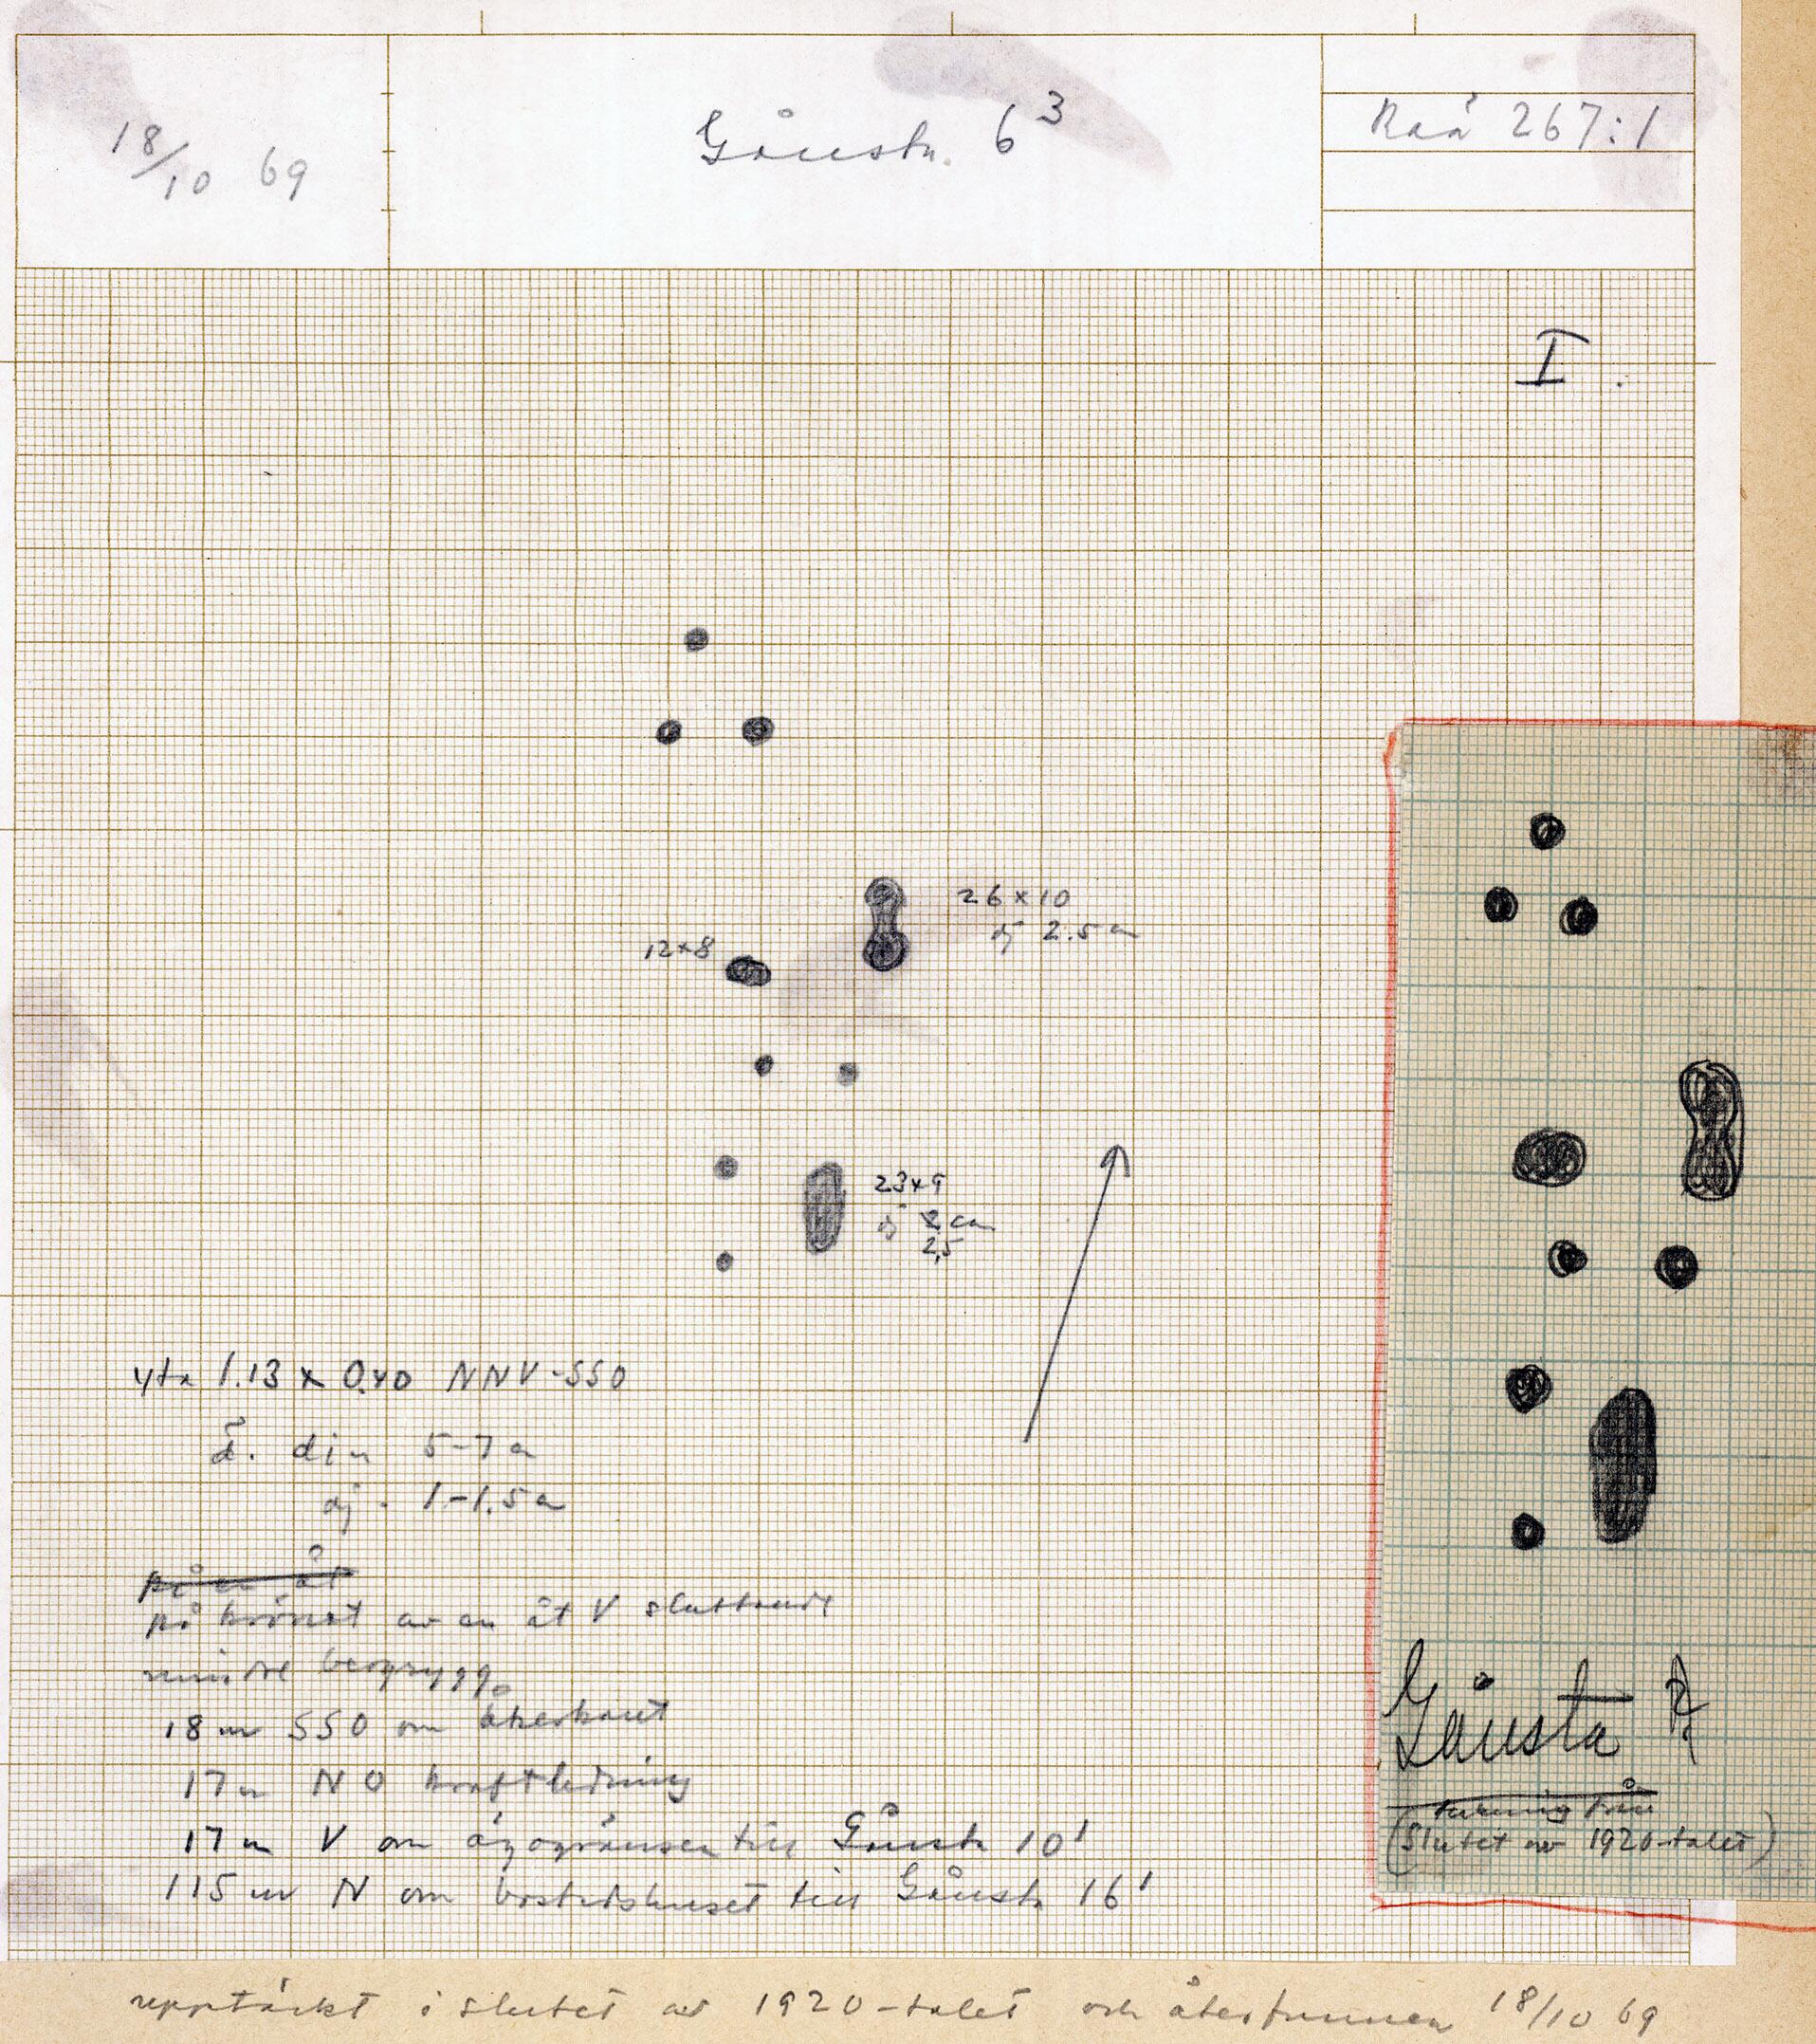 18/10 69
Gånsta 6³
Raä 267:1
I.
26 x 10
dj 2.5 cm
12 x 8
23 x 9
dj 2 cm
2,5
yta 1.13 x 0.40 NNV-SSO
dia 5-7 cm
dj. 1-1.5 cm
på en åt
på krönet av en åt V sluttande
mindre bergrygg.
18 m SSO om åkerkant
17 m NO kraftledning
17 m V om ägogränsen till Gånsta 10¹
115 m N om bostadshuset till Gånsta 16¹
upptäckt i slutet av 1920-talet och återfunnen 18/10 69
Gånsta
från
(slutet av 1920-talet)